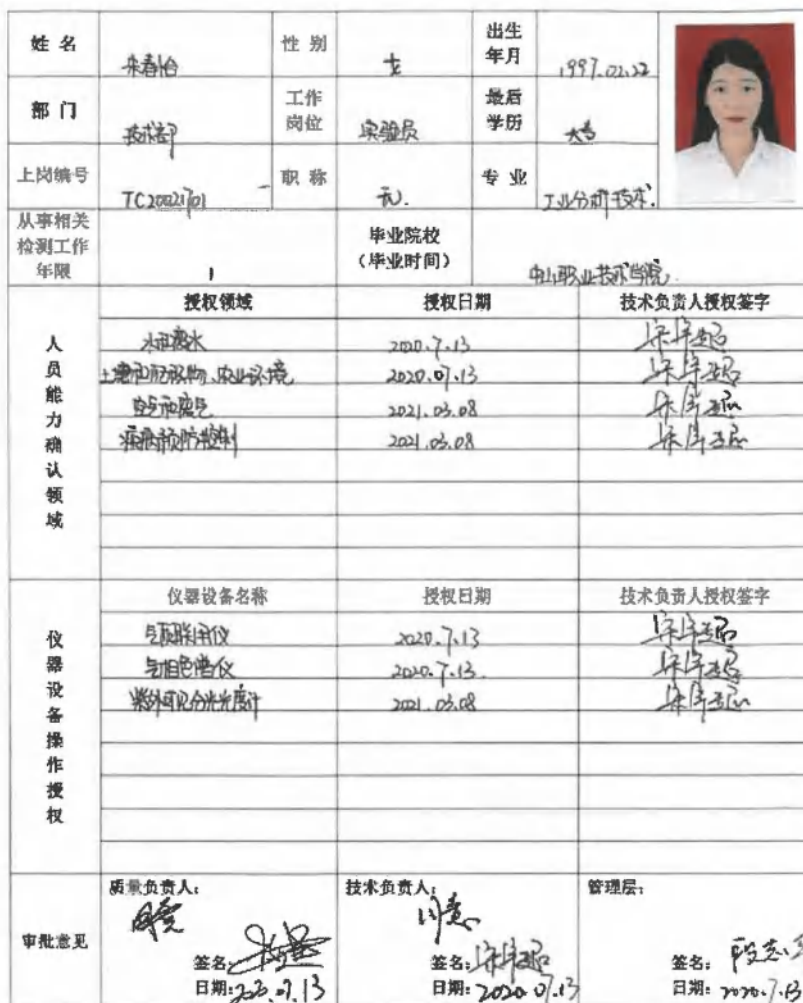 姓 名 朱春怡 性 别 女 出生年月 1997.02.22
部 门 技术部 工作岗位 实验员 最后学历 大专
上岗编号 TC20021701 职 称 无. 专 业 工业分析技术.
从事相关检测工作年限 1 毕业院校（毕业时间） 中山职业技术学院.
人员能力确认领域
授权领域 授权日期 技术负责人授权签字
水和废水 2020.7.13
土壤和沉积物、农业环境 2020.07.13
空气和废气 2021.03.08
疾病预防控制 2021.03.08
仪器设备操作授权
仪器设备名称 授权日期 技术负责人授权签字
气质联用仪 2020.7.13
气相色谱仪 2020.7.13.
紫外可见分光光度计 2021.03.08
审批意见
质量负责人： 技术负责人： 管理层：
同意 同意
签名： 签名： 签名：
日期：2020.07.13 日期：2020.07.13 日期：2020.7.13